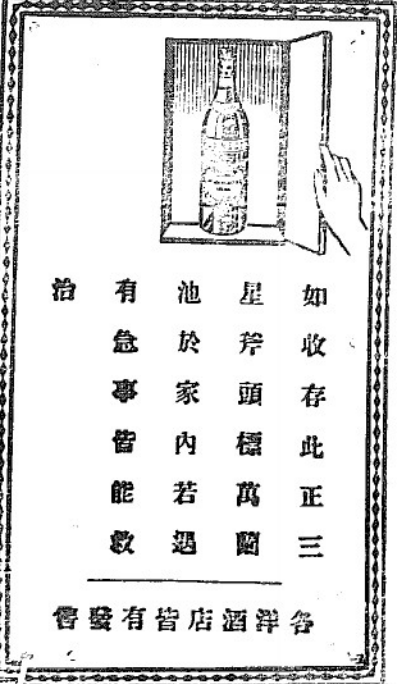 如收存此正三
星斧頭標萬蘭
池於家內若遇
有急事皆能救
治
各洋酒店皆有發售